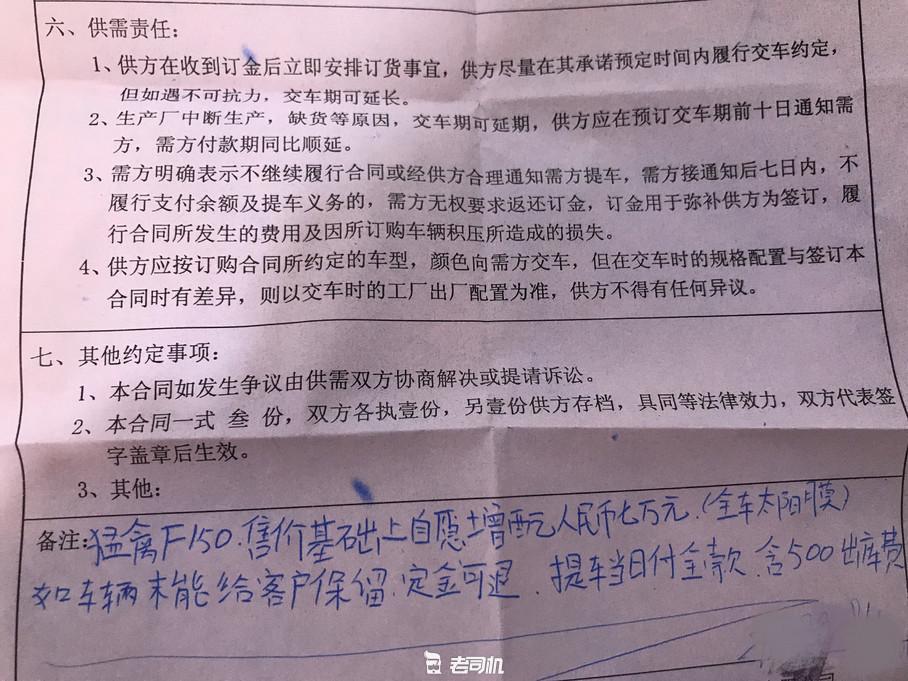 六、供需责任：
1、供方在收到订金后立即安排订货事宜，供方尽量在其承诺预定时间内履行交车约定，
但如遇不可抗力，交车期可延长。
2、生产厂中断生产，缺货等原因，交车期可延期，供方应在预订交车期前十日通知需
方，需方付款期同比顺延。
3、需方明确表示不继续履行合同或经供方合理通知需方提车，需方接通知后七日内，不
履行支付余额及提车义务的，需方无权要求返还订金，订金用于弥补供方为签订，履
行合同所发生的费用及因所订购车辆积压所造成的损失。
4、供方应按订购合同所约定的车型，颜色向需方交车，但在交车时的规格配置与签订本
合同时有差异，则以交车时的工厂出厂配置为准，供方不得有任何异议。
七、其他约定事项：
1、本合同如发生争议由供需双方协商解决或提请诉讼。
2、本合同一式 叁 份，双方各执壹份，另壹份供方存档，具同等法律效力，双方代表签
字盖章后生效。
3、其他：
备注：猛禽F150.售价基础上自愿增配人民币七万元.（全车太阳膜）
如车辆未能给客户保留.定金可退.提车当日付全款.含500出库费
老司机